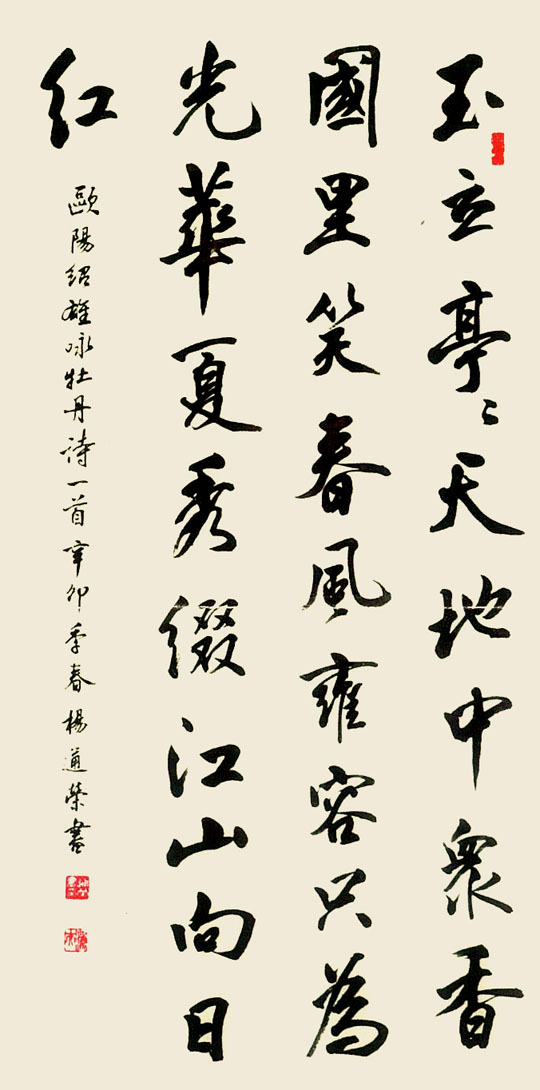 玉立亭〻天地中衆香
國里笑春風雍容只為
光華夏秀綴江山向日
紅
歐陽绍雄咏牡丹诗一首辛卯季春楊道榮書